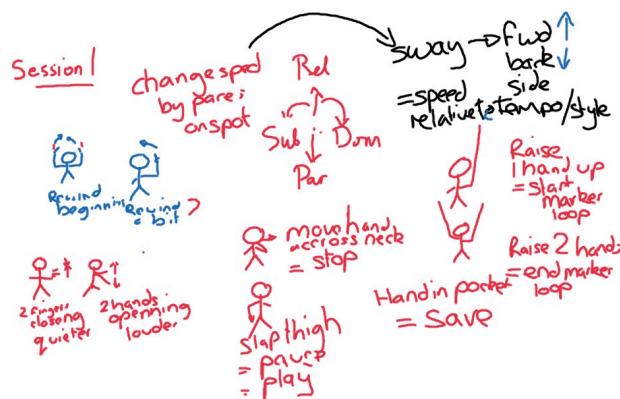 Session 1
change speed
by pare :
on spot
Rel
Sub
Dom
Par
sway → fwd
back
side
= speed
relative to tempo/style
Rewind
beginning
Rewind
a bit
2 fingers
closing
quieter
2 hands
openning
louder
move hand
accross neck
= stop
slap thigh
= pause
= play
Raise
1 hand up
= start
marker
loop
Raise 2 hands
= end marker
loop
Hand in pocket
= save